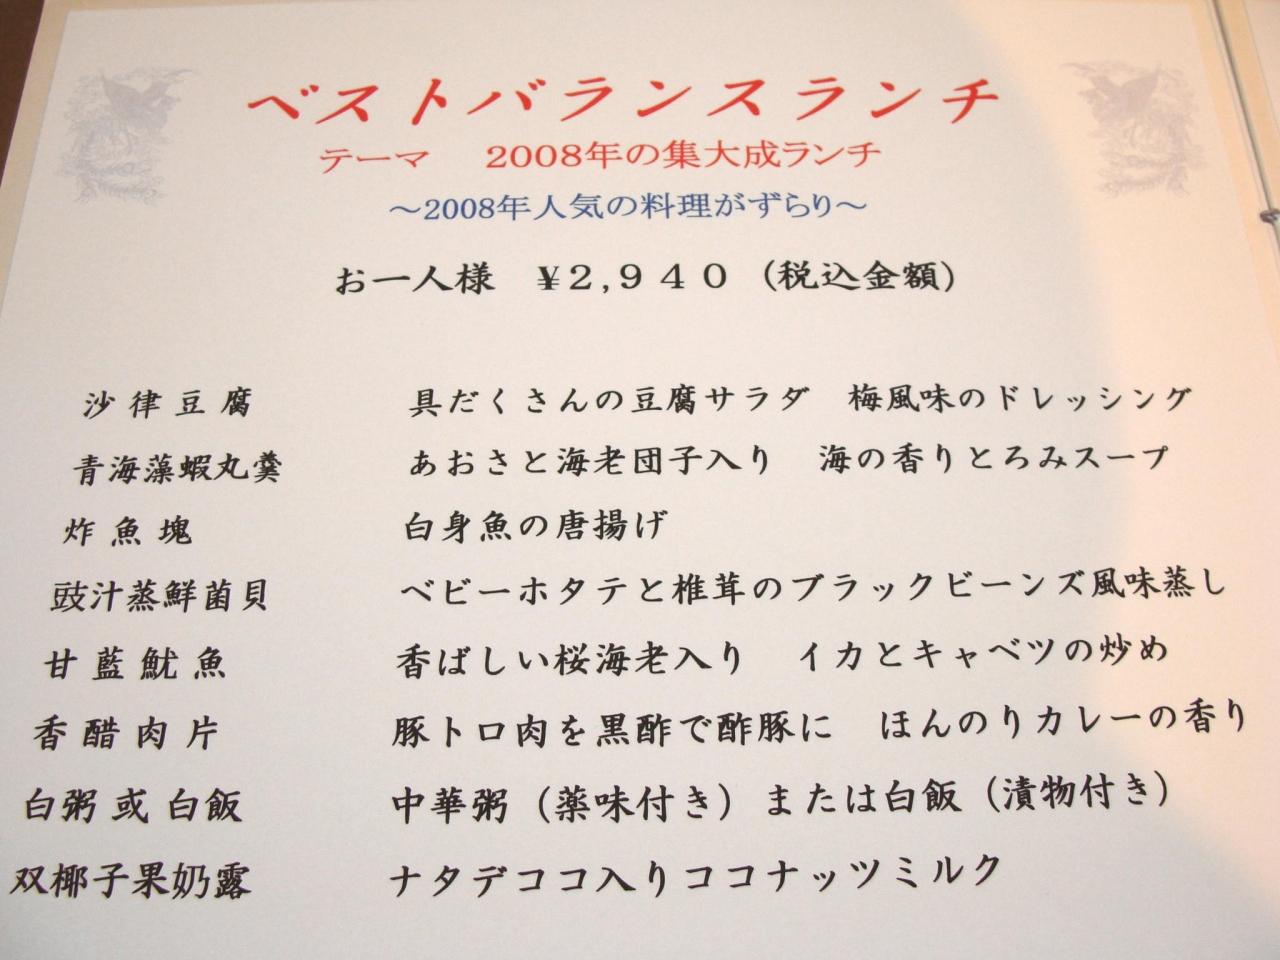 ベストバランスランチ
テーマ　2008年の集大成ランチ
～2008年人気の料理がずらり～
お一人様　¥2,940（税込金額）
沙律豆腐　具だくさんの豆腐サラダ　梅風味のドレッシング
青海藻蝦丸羹　あおさと海老団子入り　海の香りとろみスープ
炸魚塊　白身魚の唐揚げ
豉汁蒸鮮菌貝　ベビーホタテと椎茸のブラックビーンズ風味蒸し
甘藍魷魚　香ばしい桜海老入り　イカとキャベツの炒め
香醋肉片　豚トロ肉を黒酢で酢豚に　ほんのりカレーの香り
白粥或白飯　中華粥（薬味付き）または白飯（漬物付き）
双椰子果奶露　ナタデココ入りココナッツミルク